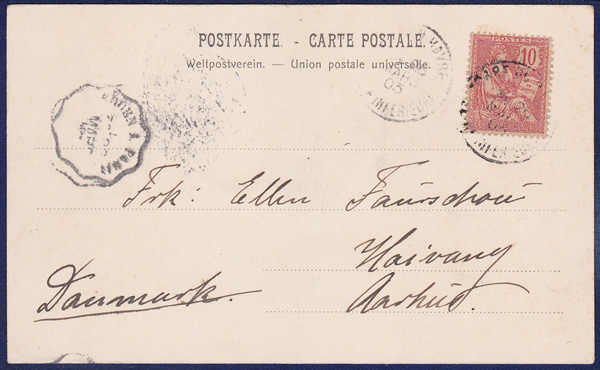 POSTKARTE. - CARTE POSTALE.
Weltpostverein. — Union postale universelle.
HAVRE
03
INFERIEURE
POSTES
10
Frk: Ellen Faurschou
Havvang
Aarhus.
Danmark.